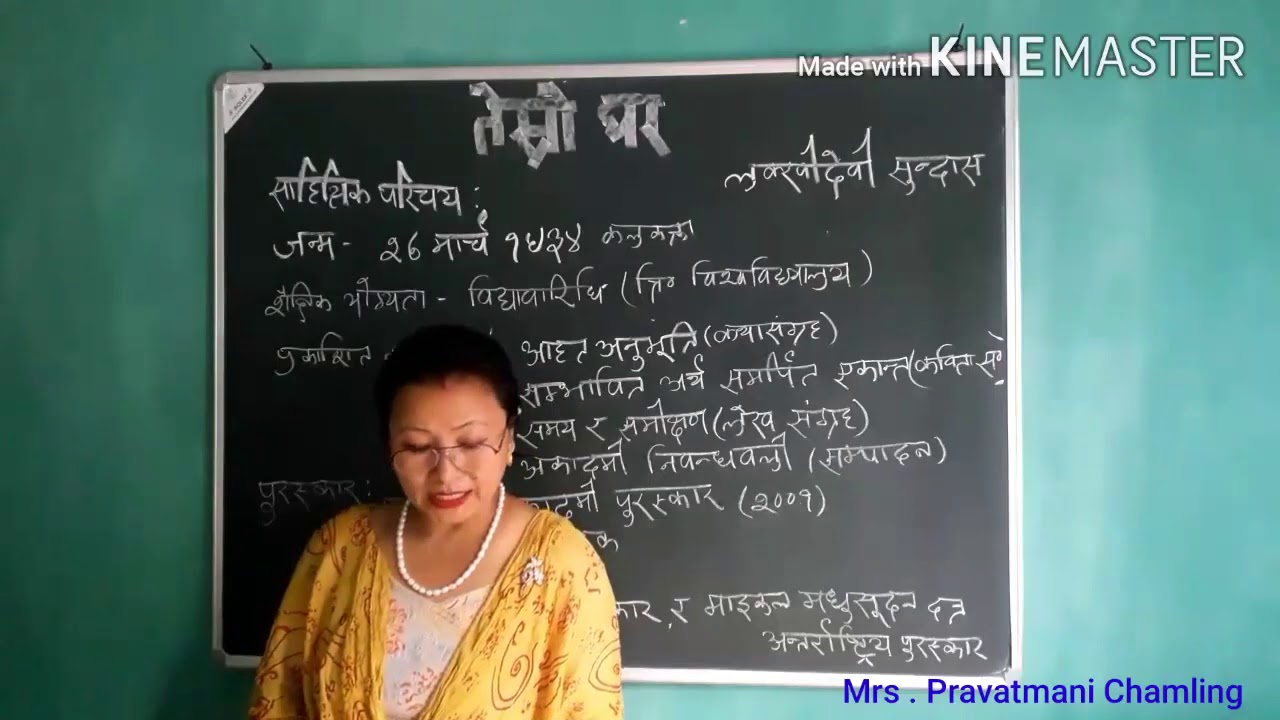 Made with KINEMASTER
तेस्रो घर
लक्खीदेवी सुन्दास
साहित्यिक परिचय :
जन्म - २६ मार्च १९३४ कलकत्ता
शैक्षिक योग्यता - विद्यावारिधि (त्रि॰ विश्वविद्यालय)
प्रकाशित
आहत अनुभूति (कथासंग्रह)
सम्भावित अर्थ समर्पित एकान्त (कविता सं॰
समय र समीक्षण (लेख संग्रह)
अकादमी निबन्धवली (सम्पादन)
पुरस्कार : पुरस्कार (२००१)
र माइकल मधुसूदन दत्त
अन्तर्राष्ट्रिय पुरस्कार
Mrs . Pravatmani Chamling